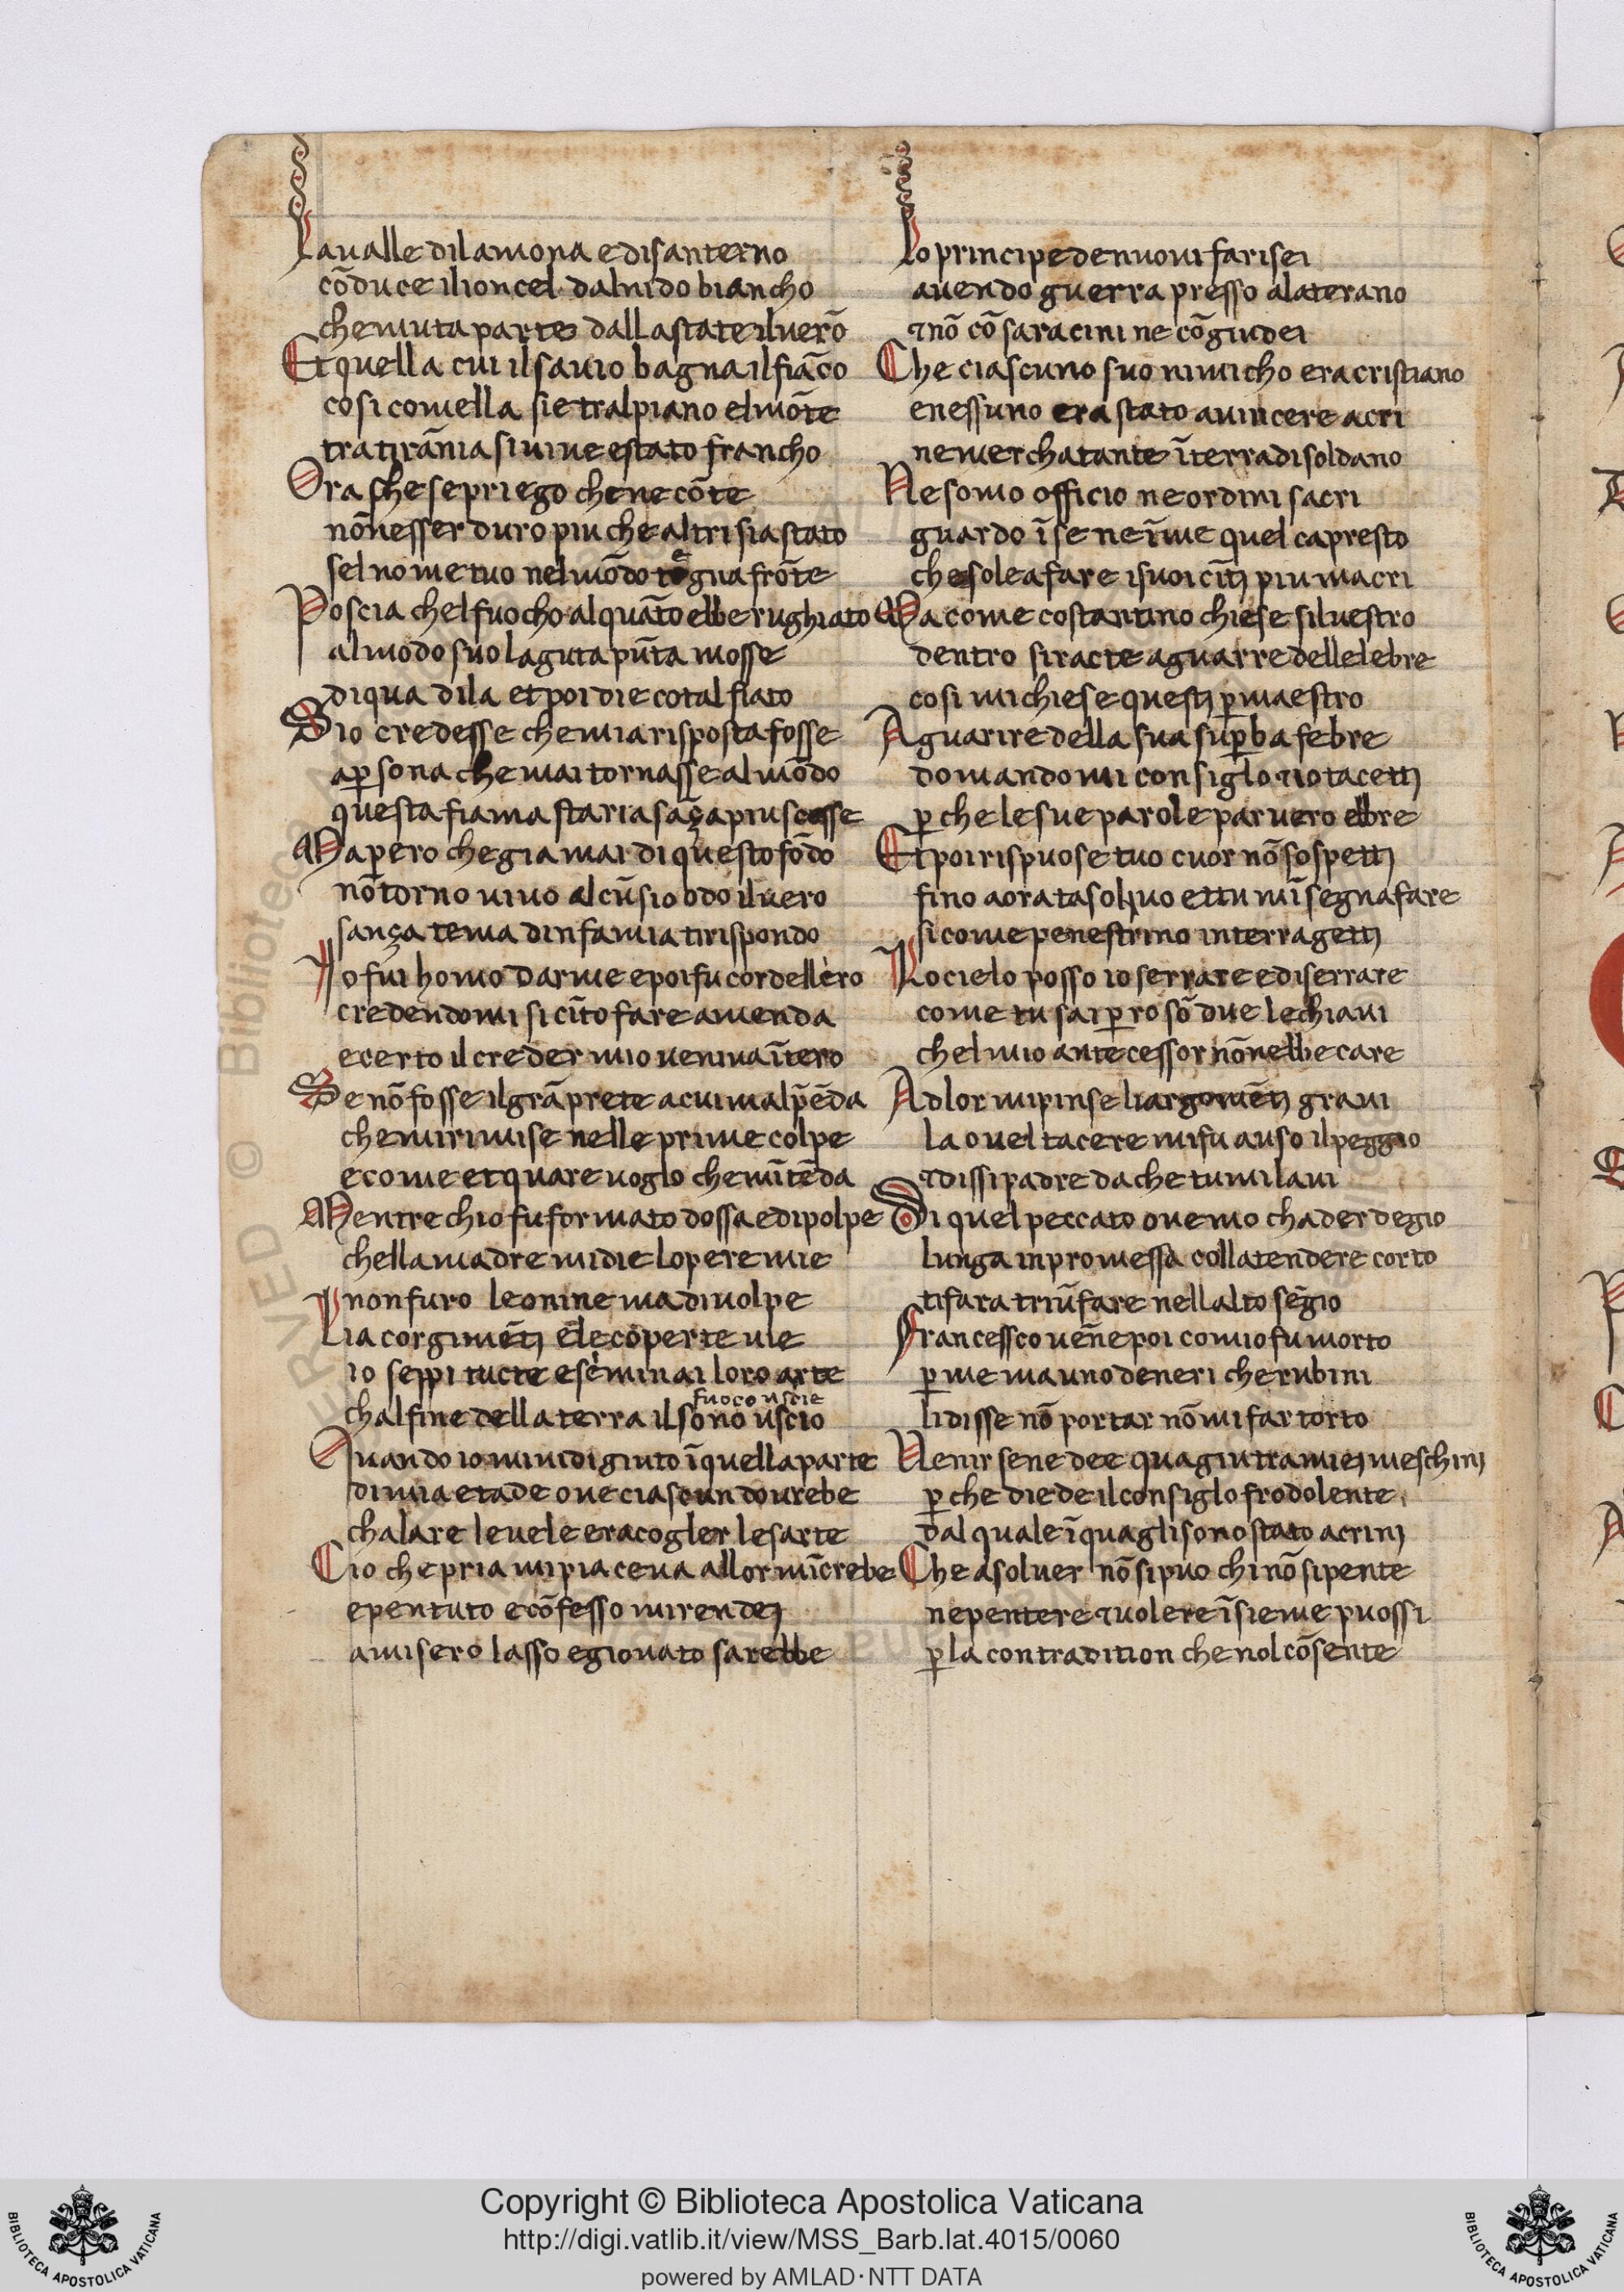 La ualle dilamona e disanterno
cōduce ilioncel dalnido biancho
che muta parte dallastate iluerō
Et quella cui ilsauio bagna ilfiāco
cosi comella sie tralpiano elmōte
tra tirānia si uiue e stato francho
Ora che se priego che ne cōte
nōnesser duro piu che altri sia stato
sel nome tuo nel mōdo tegna frōte
Poscia chel fuocho alquāto ebbe rughiato
al modo suo laguta pūta mosse
di qua di la et poi die cotal fiato
Sio credesse che mia risposta fosse
a ꝑsona che mai tornasse al mōdo
questa fiama staria sāça piu scosse
Ma ꝑero che gia mai di questo fōdo
nō torno uiuo alcū sio odo iluero
sança tema dinfamia tirispondo
Io fui homo darme e poi fu cordellero
credendomi si cīto fare amenda
e certo il creder mio ueniua ītero
Se nō fosse il grā prete a cui mal p̄ēda
che mi rimise nelle prime colpe
e come et quare uoglo che mītēda
Mentre chio fu formato dossa e di polpe
chella madre mi die lopere mie
non furo leonine ma di uolpe
Li acorgimētj e le coperte uie
io seppi tucte e se minai loro arte
fuoco uscie
chal fine della terra il sono uscio
Quando io mi uidi giuto ī quella parte
di mia etade oue ciascun dourebe
chalare le uele era cogler le sarte
Cio che pria mi piaceua allor mīcrebe
e pentuto e cōfesso mi rendej
a misero lasso e giouato sarebbe
Lo principe de nuoui farisei
auendo guerra presso alaterano
⁊ nō cō saracini ne cō giudei
Che ciascuno suo nimicho era cristiano
e nessuno era stato a uincere acri
ne merchatante ī terra di soldano
Ne somo officio ne ordini sacri
guardo ī se ne ī me quel capresto
che solea fare i suoi cītj piu macri
Ma come costantino chiese siluestro
dentro siracte a guarre delle lebre
cosi mi chiese questj ꝑ maestro
A guarire della sua suꝑba febre
domandomi consiglo ⁊ io tacettj
ꝑche le sue parole paruero ebre
Et poi rispuose tuo cuor nō sospettj
fino aora tasoluo et tu mīsegna fare
si come penestrino in terra gettj
Lo cielo posso io serrare e diserrare
come tu sai ꝑro sō due le chiaui
chel mio antecessor nōn ebbe care
Ad lor mi pinse li argomētj graui
la ouel tacere mi fu auso il peggio
⁊ dissi padre da che tu mi laui
Di quel peccato oue mo chader degio
lunga inpromessa colla tendere corto
ti fara triūfare nellalto sēgio
Francessco uēne poi comio fu morto
ꝑ me ma uno de neri cherubini
li disse nō portar nō mi far torto
Uenir sene dee qua giu tra miej meschinj
ꝑche diede il consiglo frodolente
dal quale ī qua gli sono stato a crinj
Che asoluer nō si puo chi nō si pente
ne pentere ⁊ uolere īsieme puossi
ꝑ la contradition che nol cōsente
Copyright © Biblioteca Apostolica Vaticana
http://digi.vatlib.it/view/MSS_Barb.lat.4015/0060
powered by AMLAD·NTT DATA
BIBLIOTECA APOSTOLICA VATICANA
BIBLIOTECA APOSTOLICA VATICANA